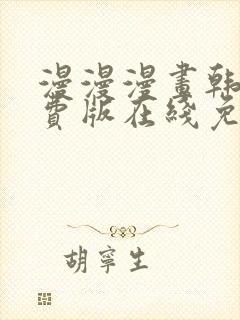 漫漫漫畫韩
費版在綫免
胡寧生